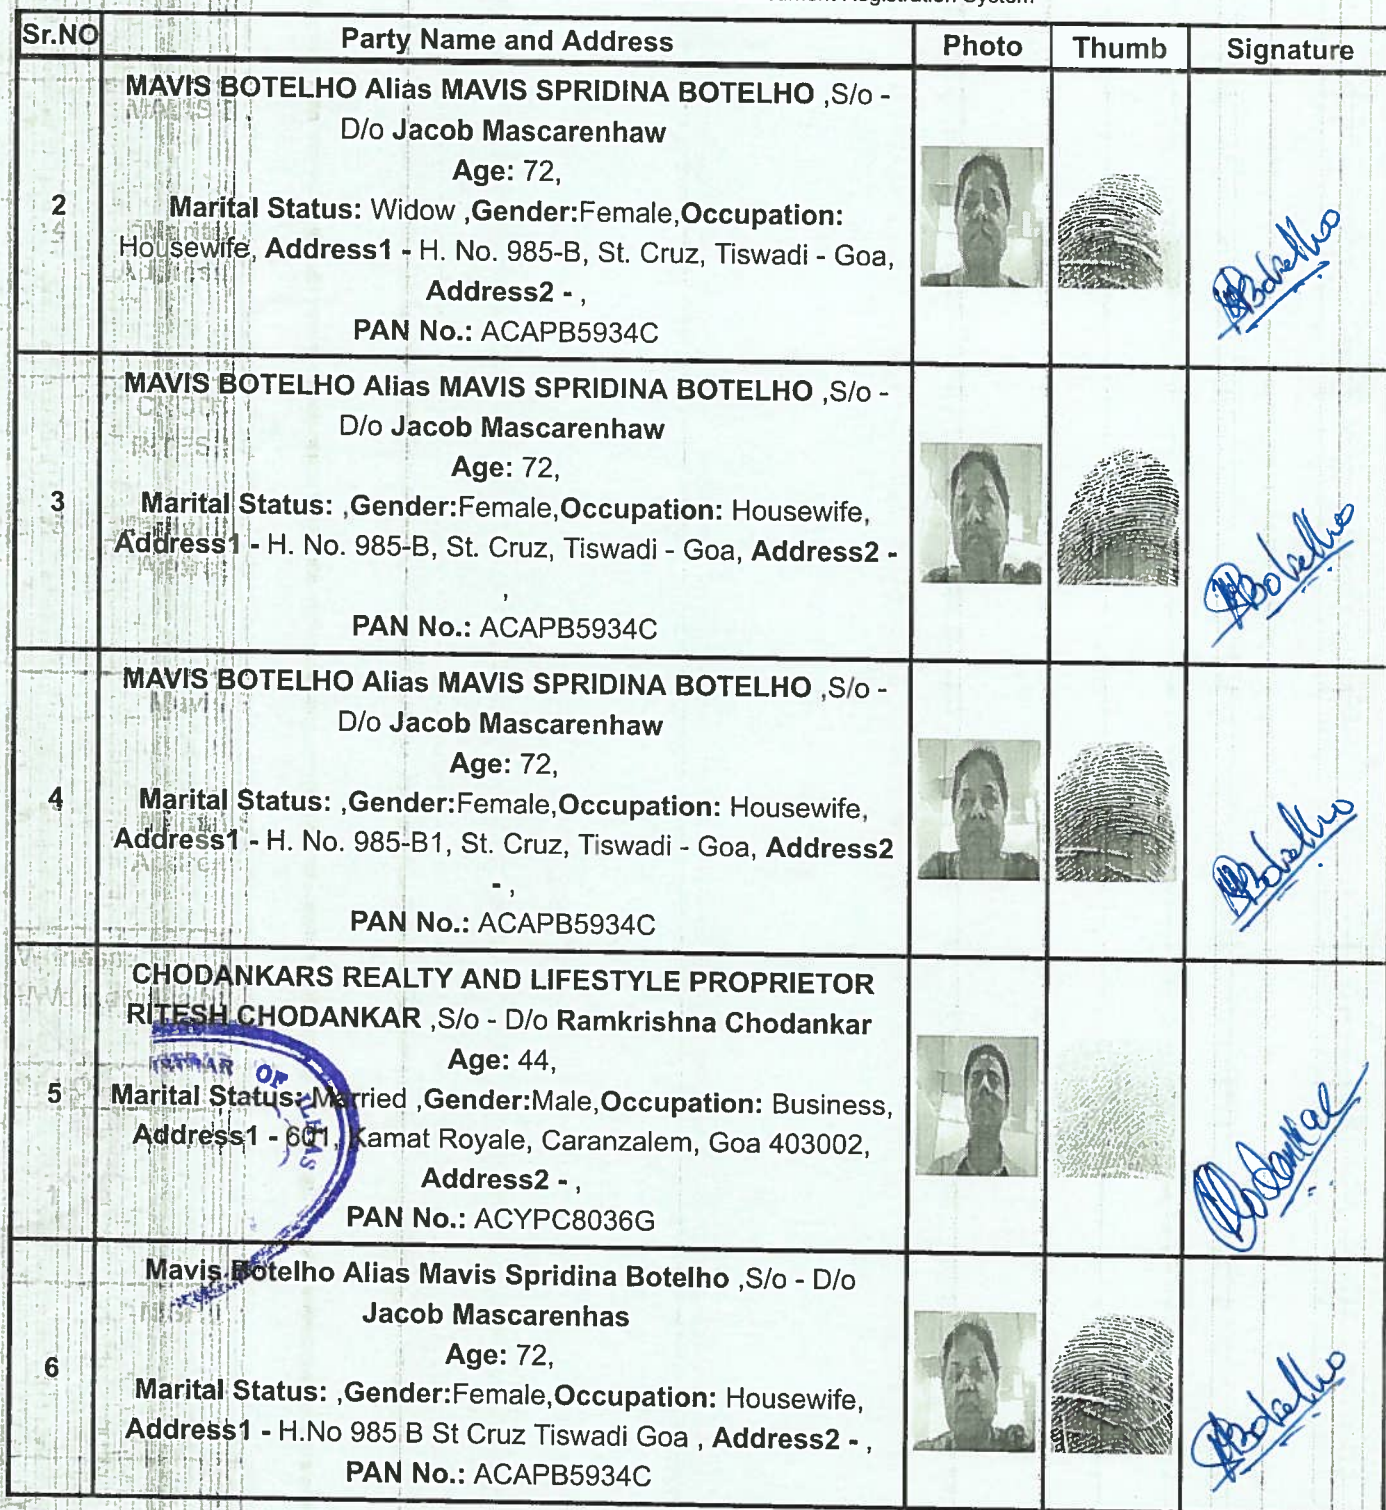 Registration System
Sr.NO Party Name and Address Photo Thumb Signature
MAVIS BOTELHO Alias MAVIS SPRIDINA BOTELHO ,S/o -
D/o Jacob Mascarenhaw
Age: 72,
2 Marital Status: Widow ,Gender:Female,Occupation:
Housewife, Address1 - H. No. 985-B, St. Cruz, Tiswadi - Goa,
Address2 - ,
PAN No.: ACAPB5934C
Botelho
MAVIS BOTELHO Alias MAVIS SPRIDINA BOTELHO ,S/o -
D/o Jacob Mascarenhaw
Age: 72,
3 Marital Status: ,Gender:Female,Occupation: Housewife,
Address1 - H. No. 985-B, St. Cruz, Tiswadi - Goa, Address2 -
,
PAN No.: ACAPB5934C
Botelho
MAVIS BOTELHO Alias MAVIS SPRIDINA BOTELHO ,S/o -
D/o Jacob Mascarenhaw
Age: 72,
4 Marital Status: ,Gender:Female,Occupation: Housewife,
Address1 - H. No. 985-B1, St. Cruz, Tiswadi - Goa, Address2
- ,
PAN No.: ACAPB5934C
Botelho
CHODANKARS REALTY AND LIFESTYLE PROPRIETOR
RITESH CHODANKAR ,S/o - D/o Ramkrishna Chodankar
Age: 44,
5 Marital Status: Married ,Gender:Male,Occupation: Business,
Address1 - 601, Kamat Royale, Caranzalem, Goa 403002,
Address2 - ,
PAN No.: ACYPC8036G
OF
Chodankar
Mavis Botelho Alias Mavis Spridina Botelho ,S/o - D/o
Jacob Mascarenhas
Age: 72,
6 Marital Status: ,Gender:Female,Occupation: Housewife,
Address1 - H.No 985 B St Cruz Tiswadi Goa , Address2 - ,
PAN No.: ACAPB5934C
Botelho